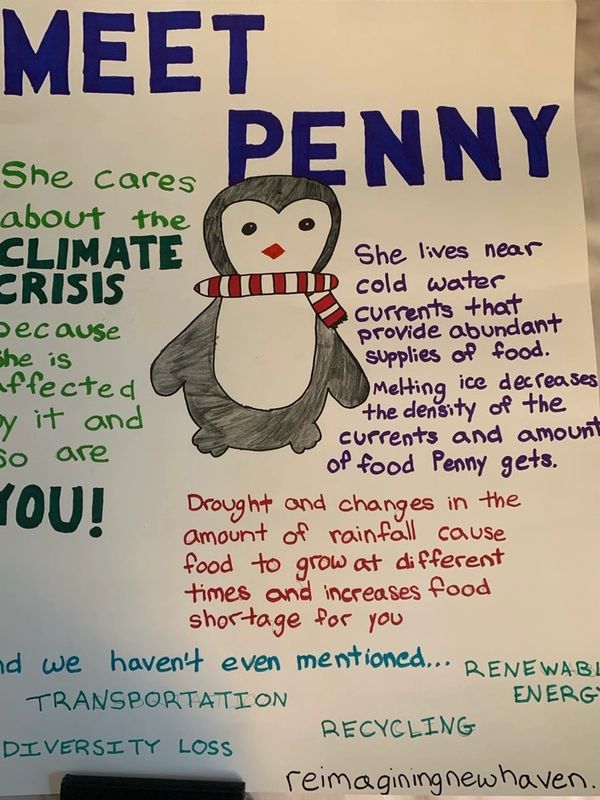 MEET
PENNY
She cares
about the
CLIMATE
CRISIS
because
she is
affected
by it and
so are
YOU!
She lives near
cold water
currents that
provide abundant
supplies of food.
Melting ice decreases
the density of the
currents and amount
of food Penny gets.
Drought and changes in the
amount of rainfall cause
food to grow at different
times and increases food
shortage for you
nd we haven't even mentioned...
RENEWABL
ENERGY
TRANSPORTATION
RECYCLING
DIVERSITY LOSS
reimaginingnewhaven.